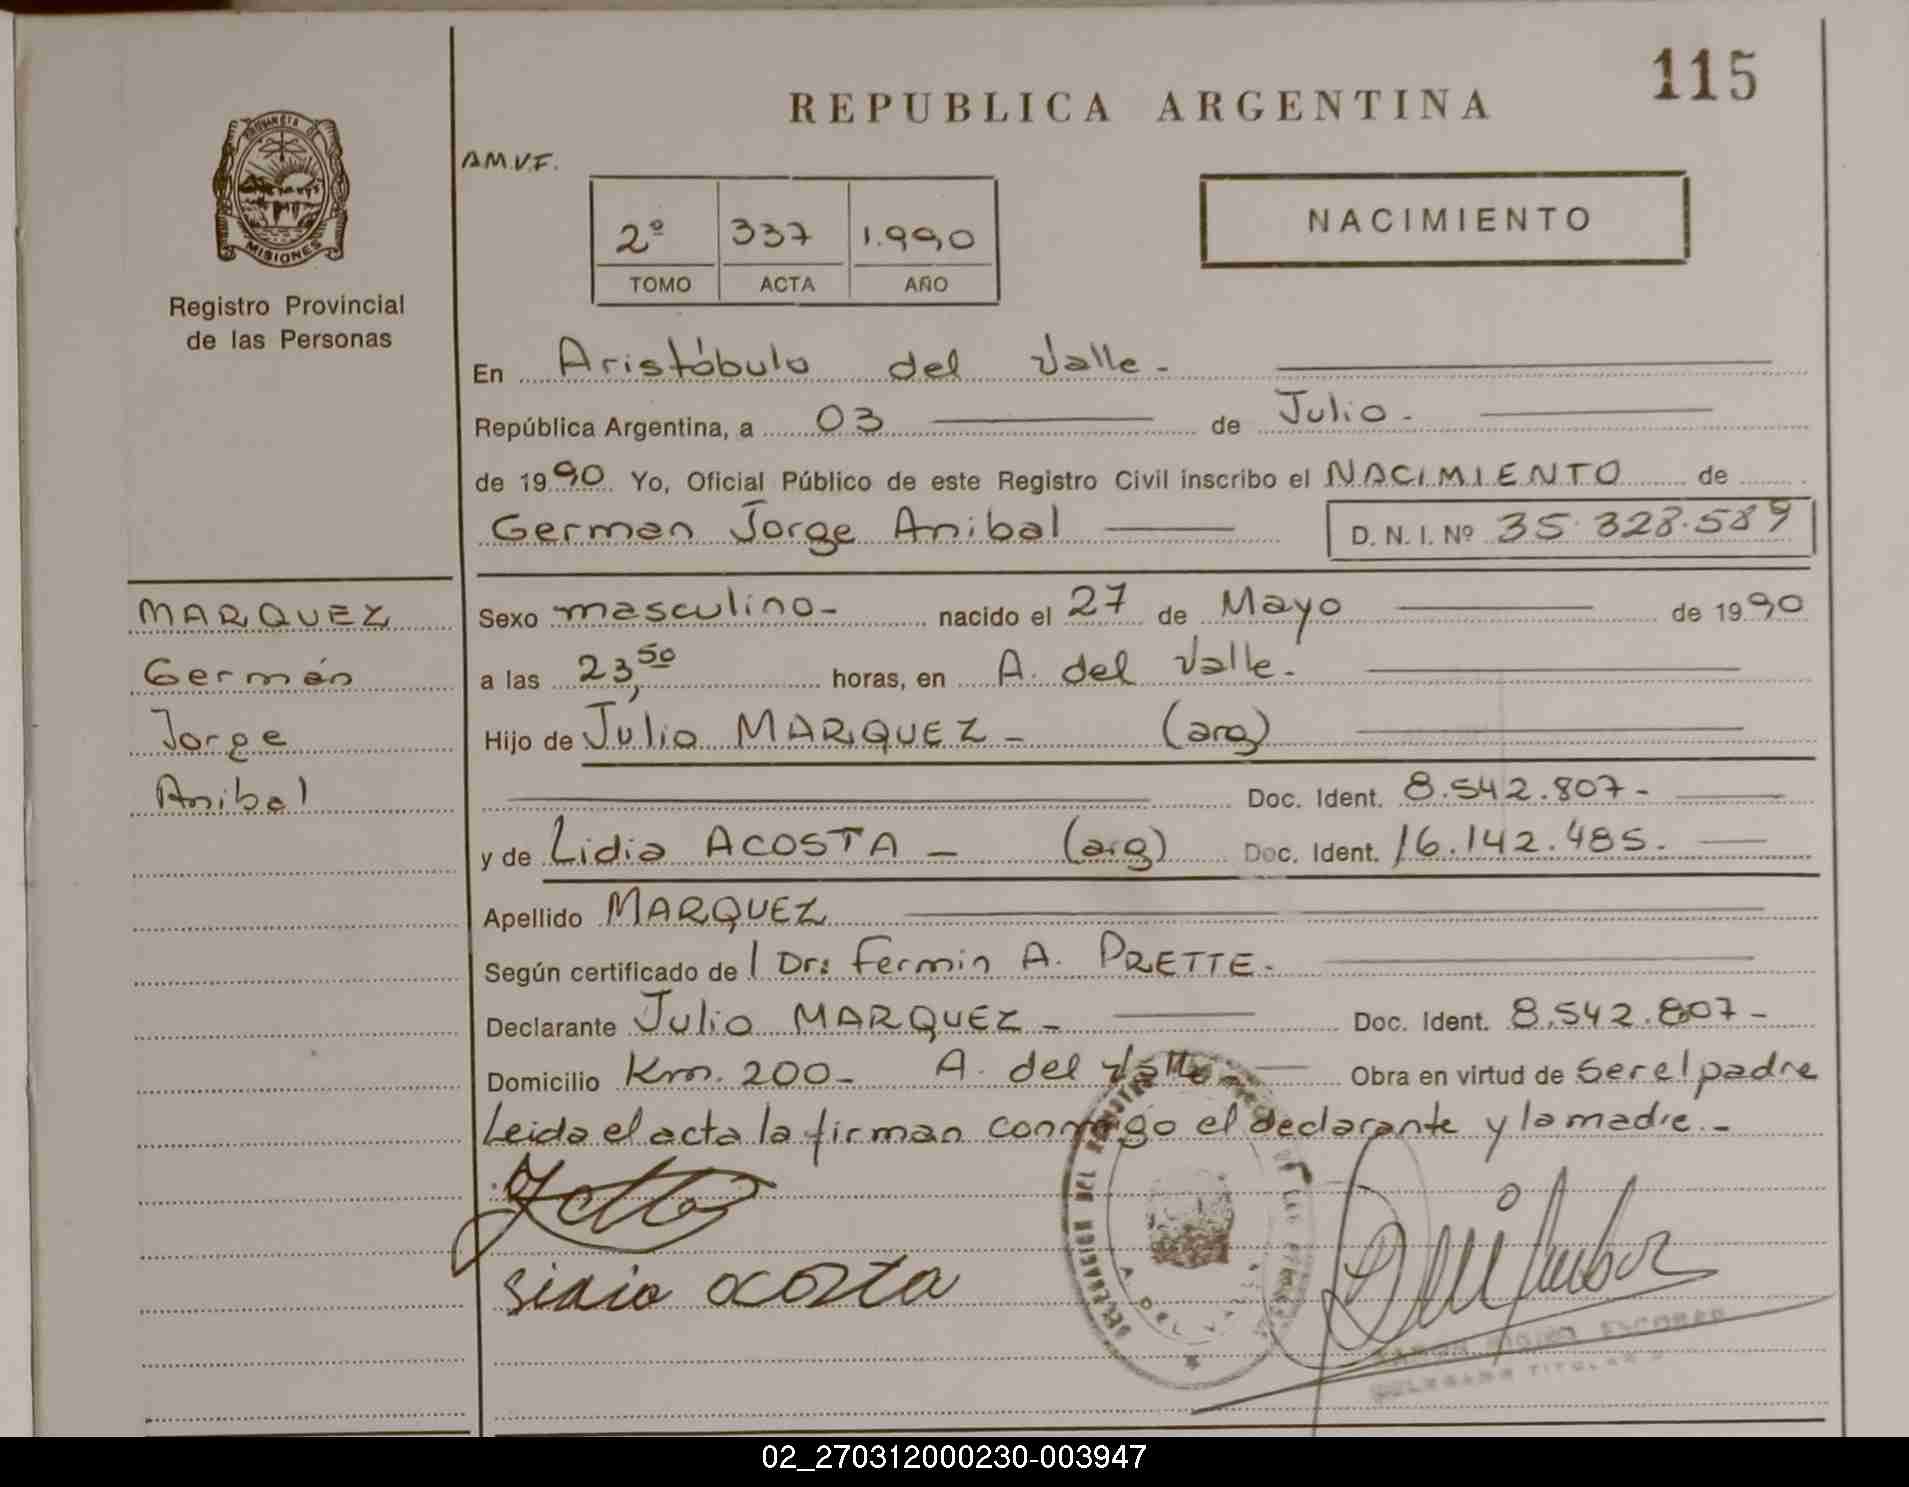 115
REPUBLICA ARGENTINA
A.M.V.F.
PROVINCIA DE
MISIONES
Registro Provincial
de las Personas
2º 337 1.990
TOMO ACTA AÑO
NACIMIENTO
En Aristóbulo del Valle.-
República Argentina, a 03 de Julio.-
de 1990 Yo, Oficial Público de este Registro Civil inscribo el NACIMIENTO de
German Jorge Anibal D. N. I. Nº 35.328.589
MARQUEZ
Germán
Jorge
Anibal
Sexo masculino- nacido el 27 de Mayo de 1990
a las 23,50 horas, en A. del Valle.-
Hijo de Julio MARQUEZ - (arg)
Doc. Ident. 8.542.807-
y de Lidia ACOSTA - (arg) Doc. Ident. 16.142.485.
Apellido MARQUEZ
Según certificado de l Dr: Fermin A. PRETTE.
Declarante Julio MARQUEZ - Doc. Ident. 8.542.807-
Domicilio Km. 200- A. del Valle Obra en virtud de ser el padre
Leida el acta la firman conmigo el declarante y la madre.-
acosta
DELEGACION DEL REGISTRO
DE LAS
ESCOBAR
TITULAR
02_270312000230-003947